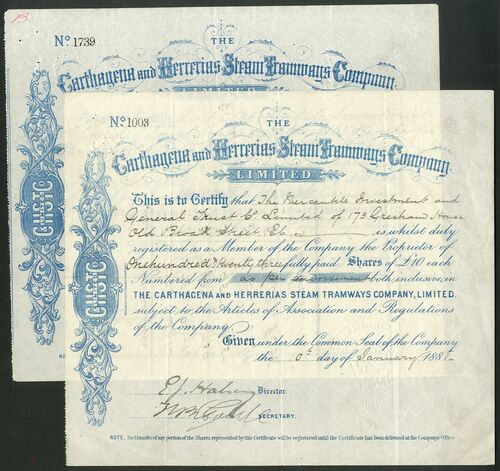 No. 1739
THE
Carthagena and Herrerias Steam Tramways Company
LIMITED
No. 1003
THE
Carthagena and Herrerias Steam Tramways Company
LIMITED
This is to Certify that The Mercantile Investment and
General Trust Co Limited of 173 Gresham House
Old Broad Street E.C. is whilst duly
registered as a Member of the Company the Proprietor of
One hundred & twenty three fully paid Shares of £10 each
Numbered from as per endorsement both inclusive, in
THE CARTHAGENA AND HERRERIAS STEAM TRAMWAYS COMPANY, LIMITED,
subject to the Articles of Association and Regulations
of the Company.
Given under the Common Seal of the Company
the day of January 188
Director.
SECRETARY.
NOTE. No transfer of any portion of the Shares represented by this Certificate will be registered until the Certificate has been delivered at the Company's Office